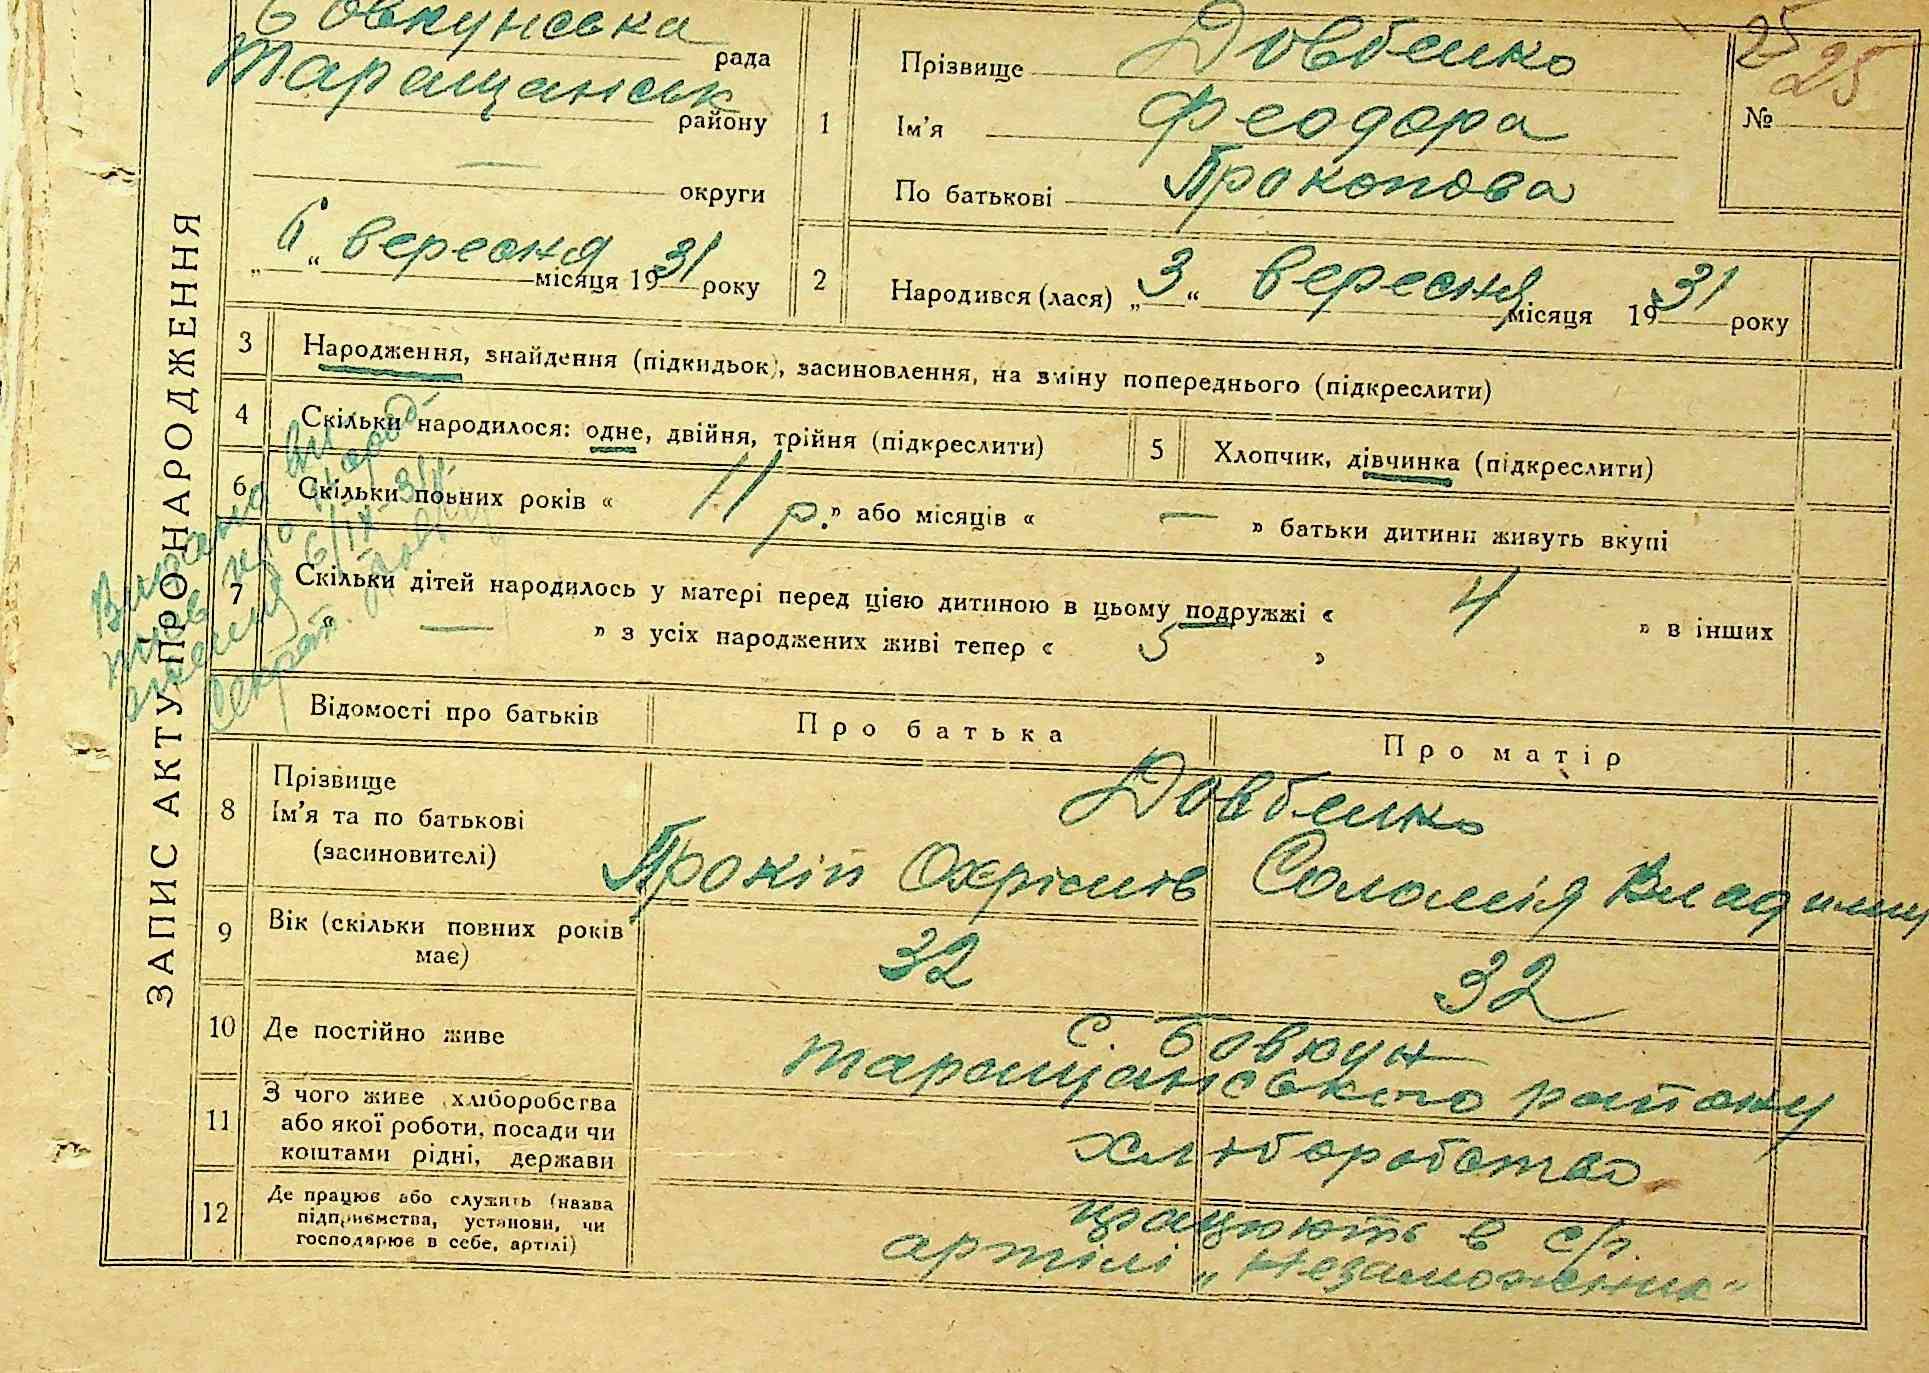 ЗАПИС АКТУ ПРО НАРОДЖЕННЯ
Бовкунська рада
Таращанськ району
— округи
„6“ вересня місяця 1931 року
1
Прізвище Довбенко
Ім'я Феодора
По батькові Прокопова
25
25
№
2
Народився (лася) „3“ вересня місяця 1931 року
3 Народження, знайдення (підкидьок), засиновлення, на зміну попереднього (підкреслити)
4 Скільки народилося: одне, двійня, трійня (підкреслити)
5 Хлопчик, дівчинка (підкреслити)
6 Скільки повних років « 11 р. » або місяців « — » батьки дитини живуть вкупі
7 Скільки дітей народилось у матері перед цією дитиною в цьому подружжі « 4 » в інших
« — » з усіх народжених живі тепер « 5 »
Видано
6/IX-31р.
Секрет.
Відомості про батьків
Про батька
Про матір
8 Прізвище
Ім'я та по батькові
(засиновителі)
Довбенко
Прокіп Охрімів Соломія Владимир
9 Вік (скільки повних років
має)
32
32
10 Де постійно живе
с. Бовкун
Таращанського району
11 З чого живе хліборобства
або якої роботи, посади чи
коштами рідні, держави
хліборобство
12 Де працює або служить (назва
підприємства, установи, чи
господарює в себе, артілі)
працюють в с/г.
артілі „Незаможник“